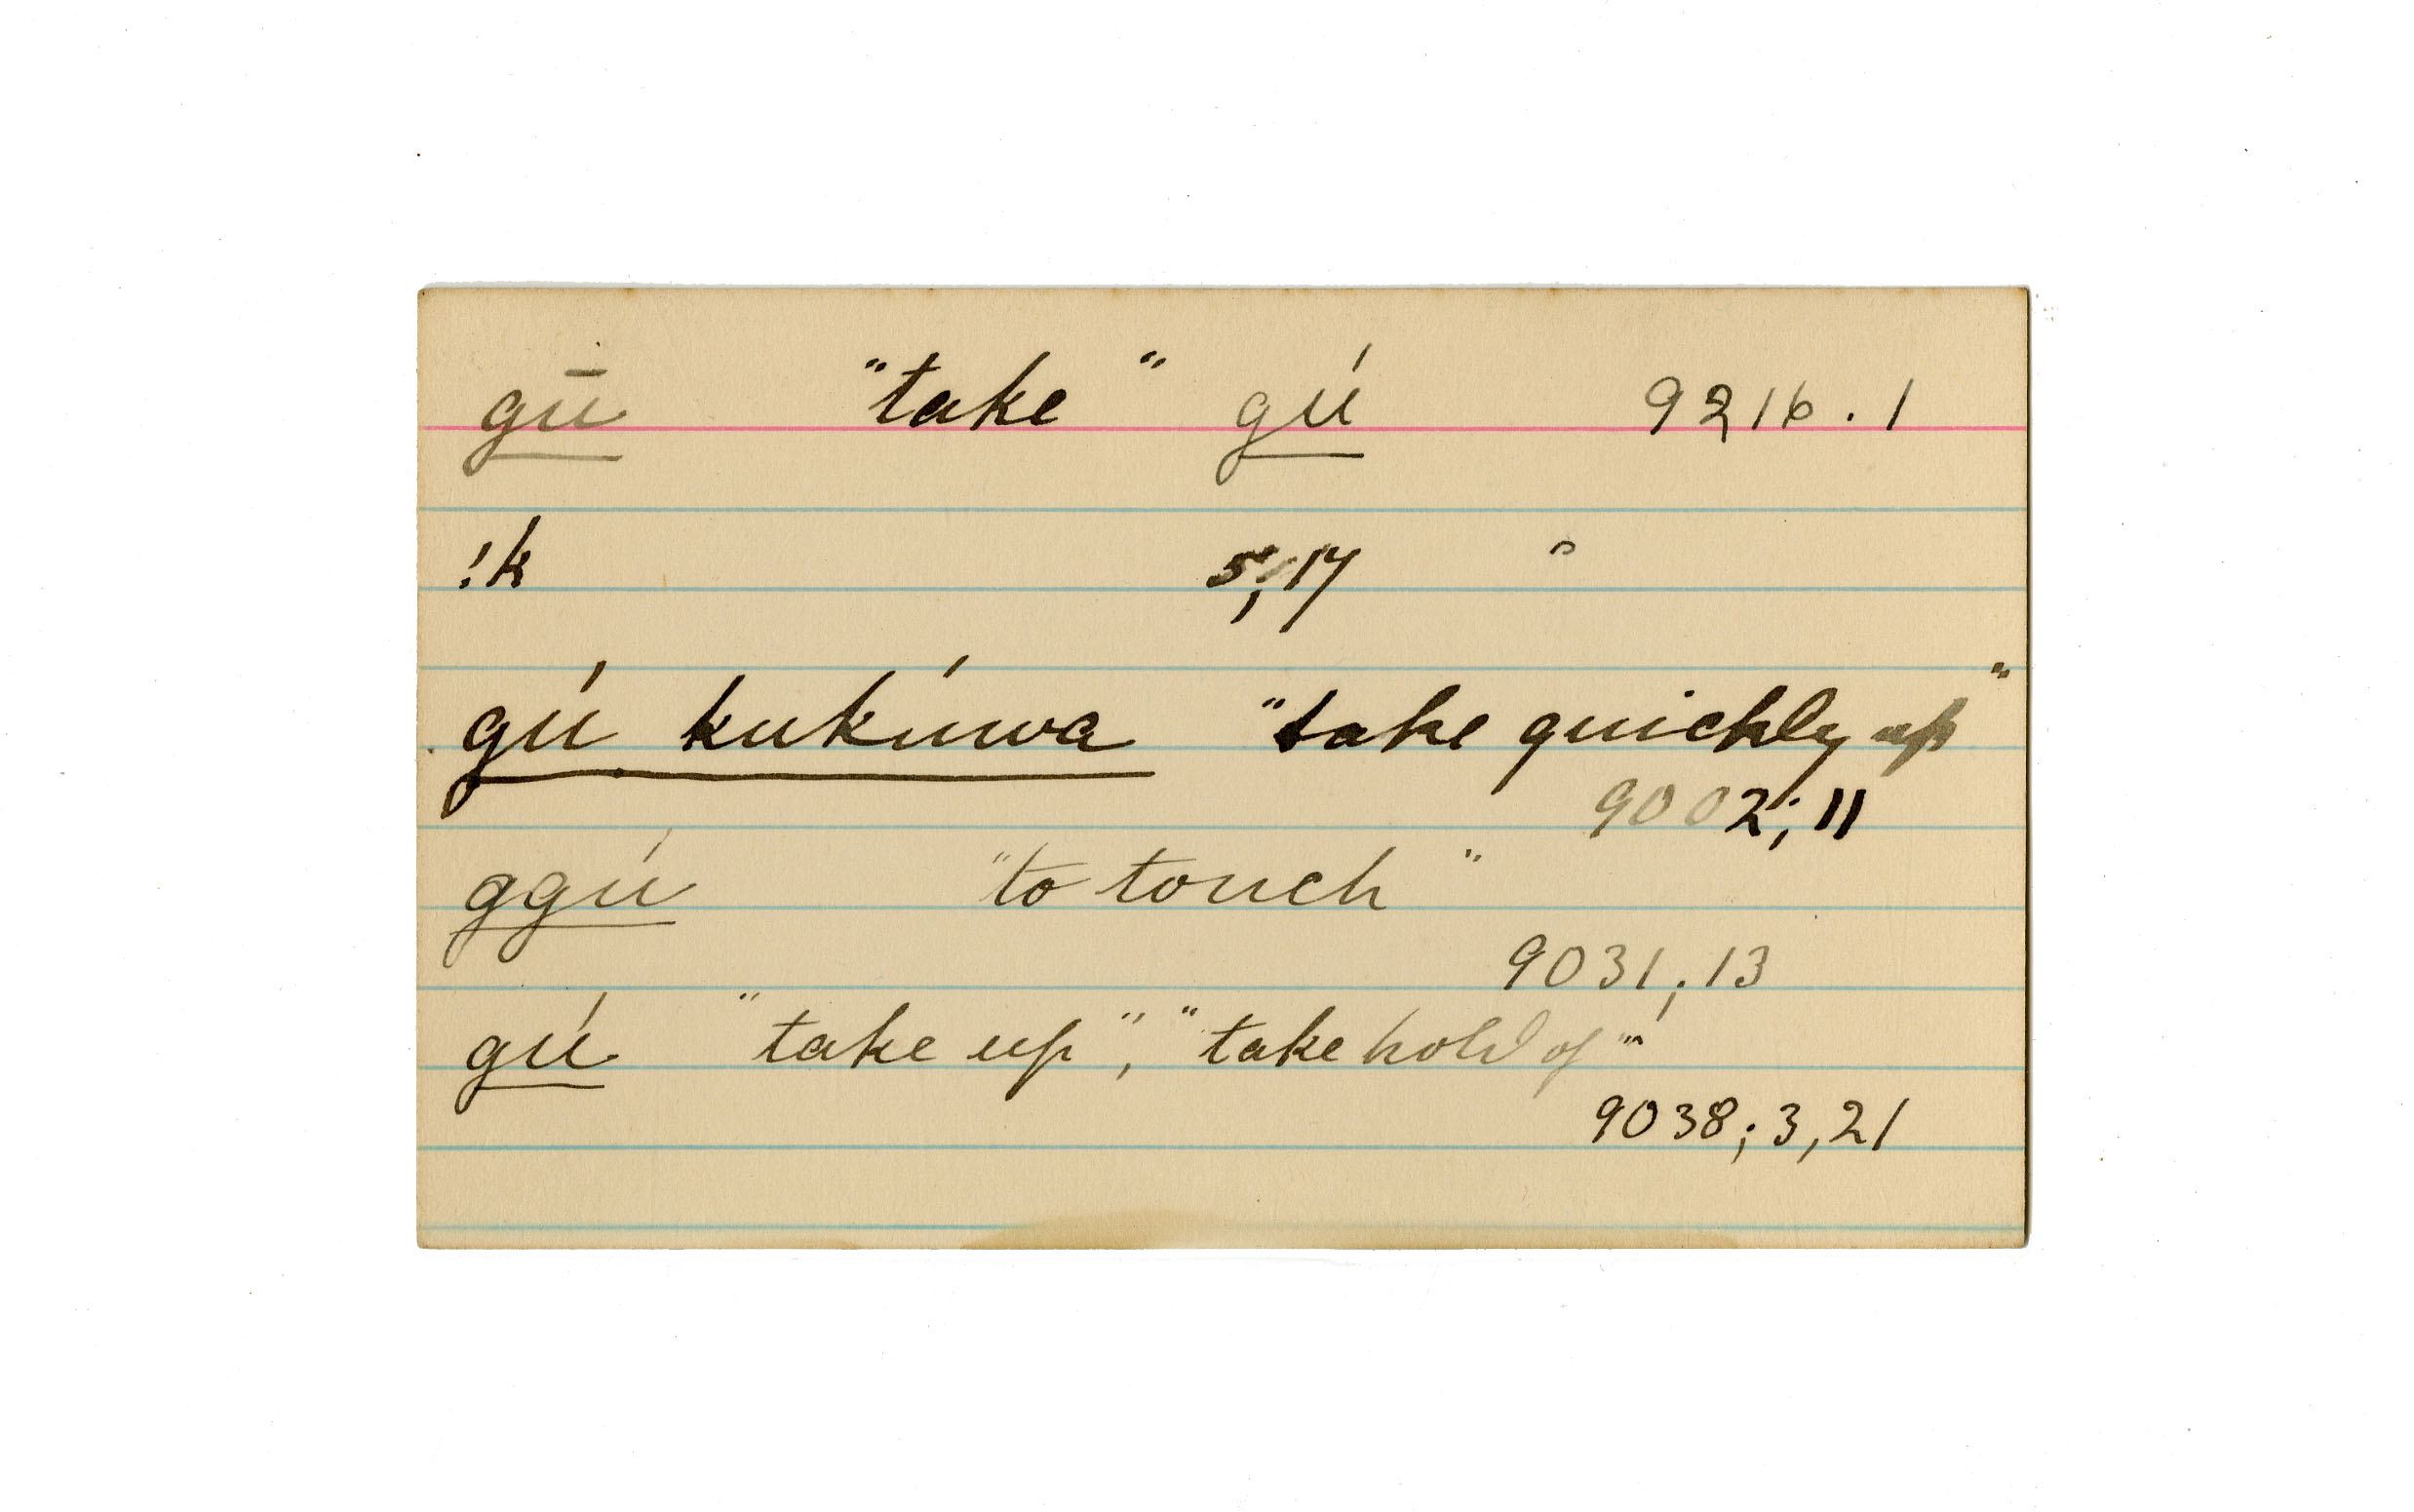 gū "take" gú 9216.1
!k 5;17
gú kukúwa "take quickly up"
9002;11
ggú "to touch"
9031;13
gú "take up", "take hold of"
9038;3,21